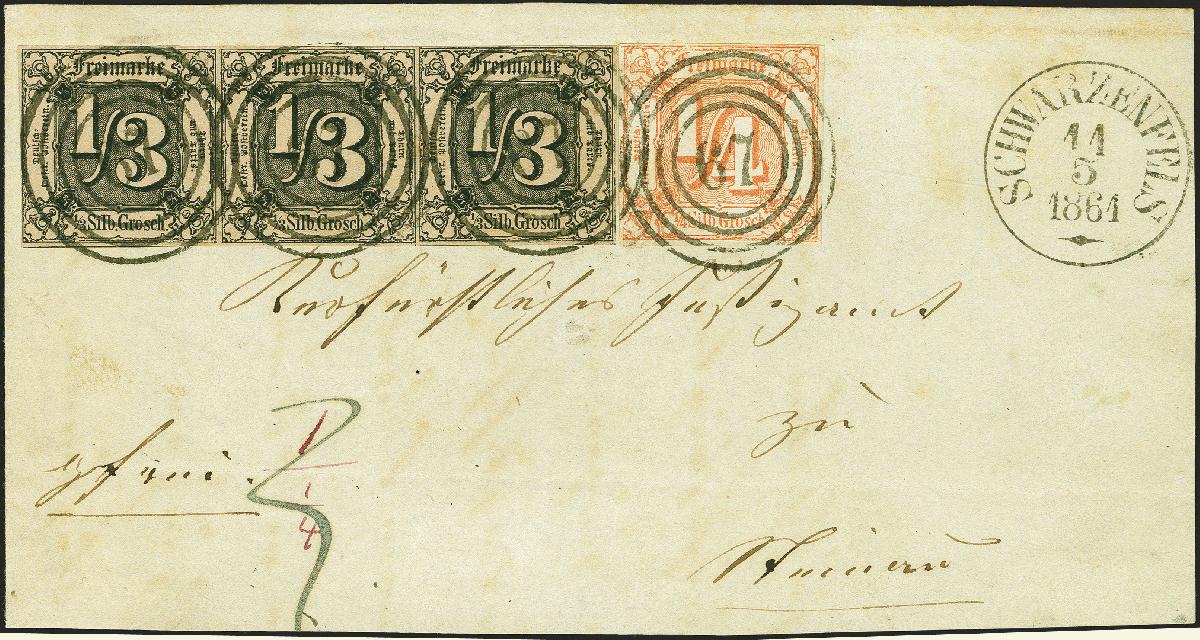 Freimarke
1/3
1/3 Silb.Grosch
Freimarke
1/3
1/3 Silb.Grosch
Freimarke
1/3
1/3 Silb.Grosch
Freimarke
1/4
1/4 Silb.Grosch
67
SCHWARZENFELS
11
3
1861
Kurfürstliches Justizamt
zu
Steinau
frei.
1
1/4